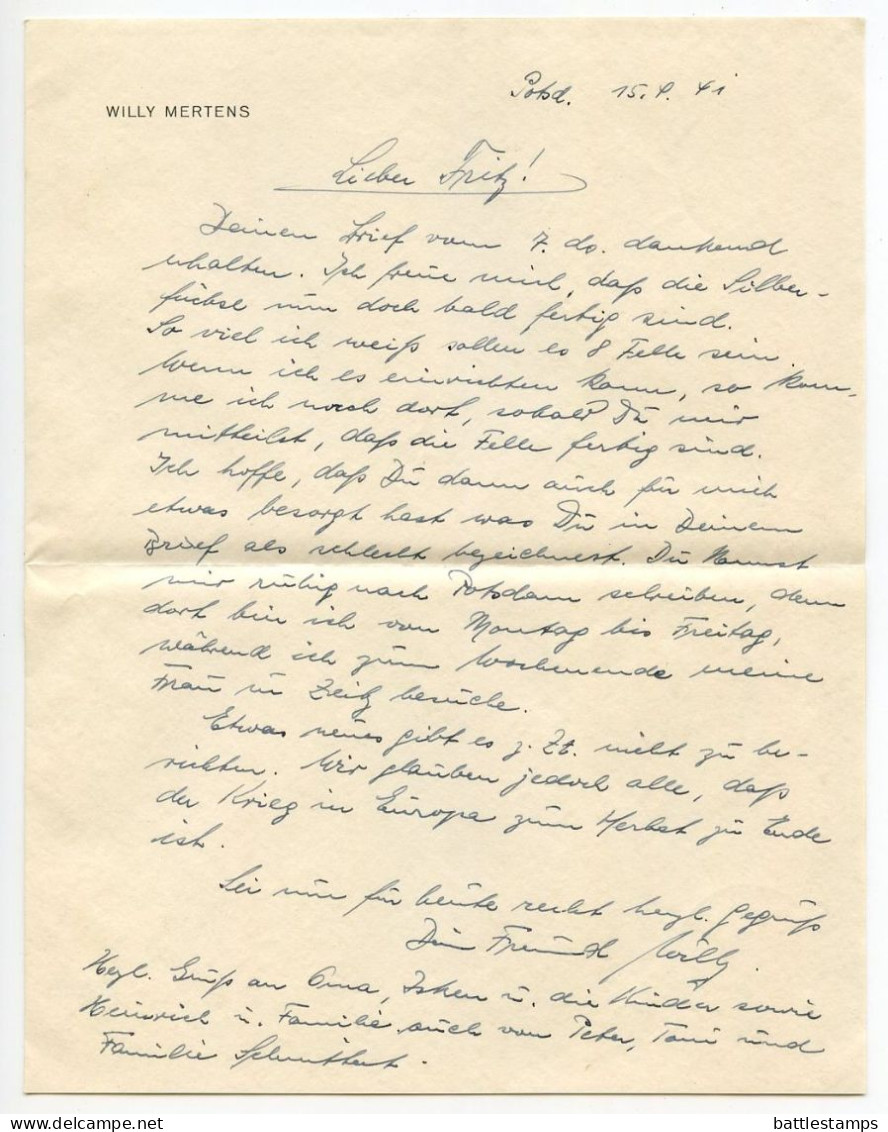 WILLY MERTENS
Potsd. 15.4.41
Lieber Fritz!
Deinen Brief vom 7. ds. dankend
erhalten. Ich freue mich, daß die Silber-
füchse nun doch bald fertig sind.
So viel ich weiß sollen es 8 Felle sein.
Wenn ich es einrichten kann, so kom-
me ich nach dort, sobald Du mir
mitteilst, daß die Felle fertig sind.
Ich hoffe, daß Du dann auch für mich
etwas besorgt hast was Du in Deinem
Brief als schlecht bezeichnest. Du kannst
mir ruhig nach Potsdam schreiben, denn
dort bin ich von Montag bis Freitag,
während ich zum Wochenende meine
Frau in Zeitz besuche.
Etwas neues gibt es z. Zt. nicht zu be-
richten. Wir glauben jedoch alle, daß
der Krieg in Europa zum Herbst zu Ende
ist.
Sei nun für heute recht herzl. gegrüßt
Dein Freund Willy.
Herzl. Gruß an Oma, u. die Kinder sowie
Heinrich u. Familie auch von Peter, Toni und
Familie
battlestamps